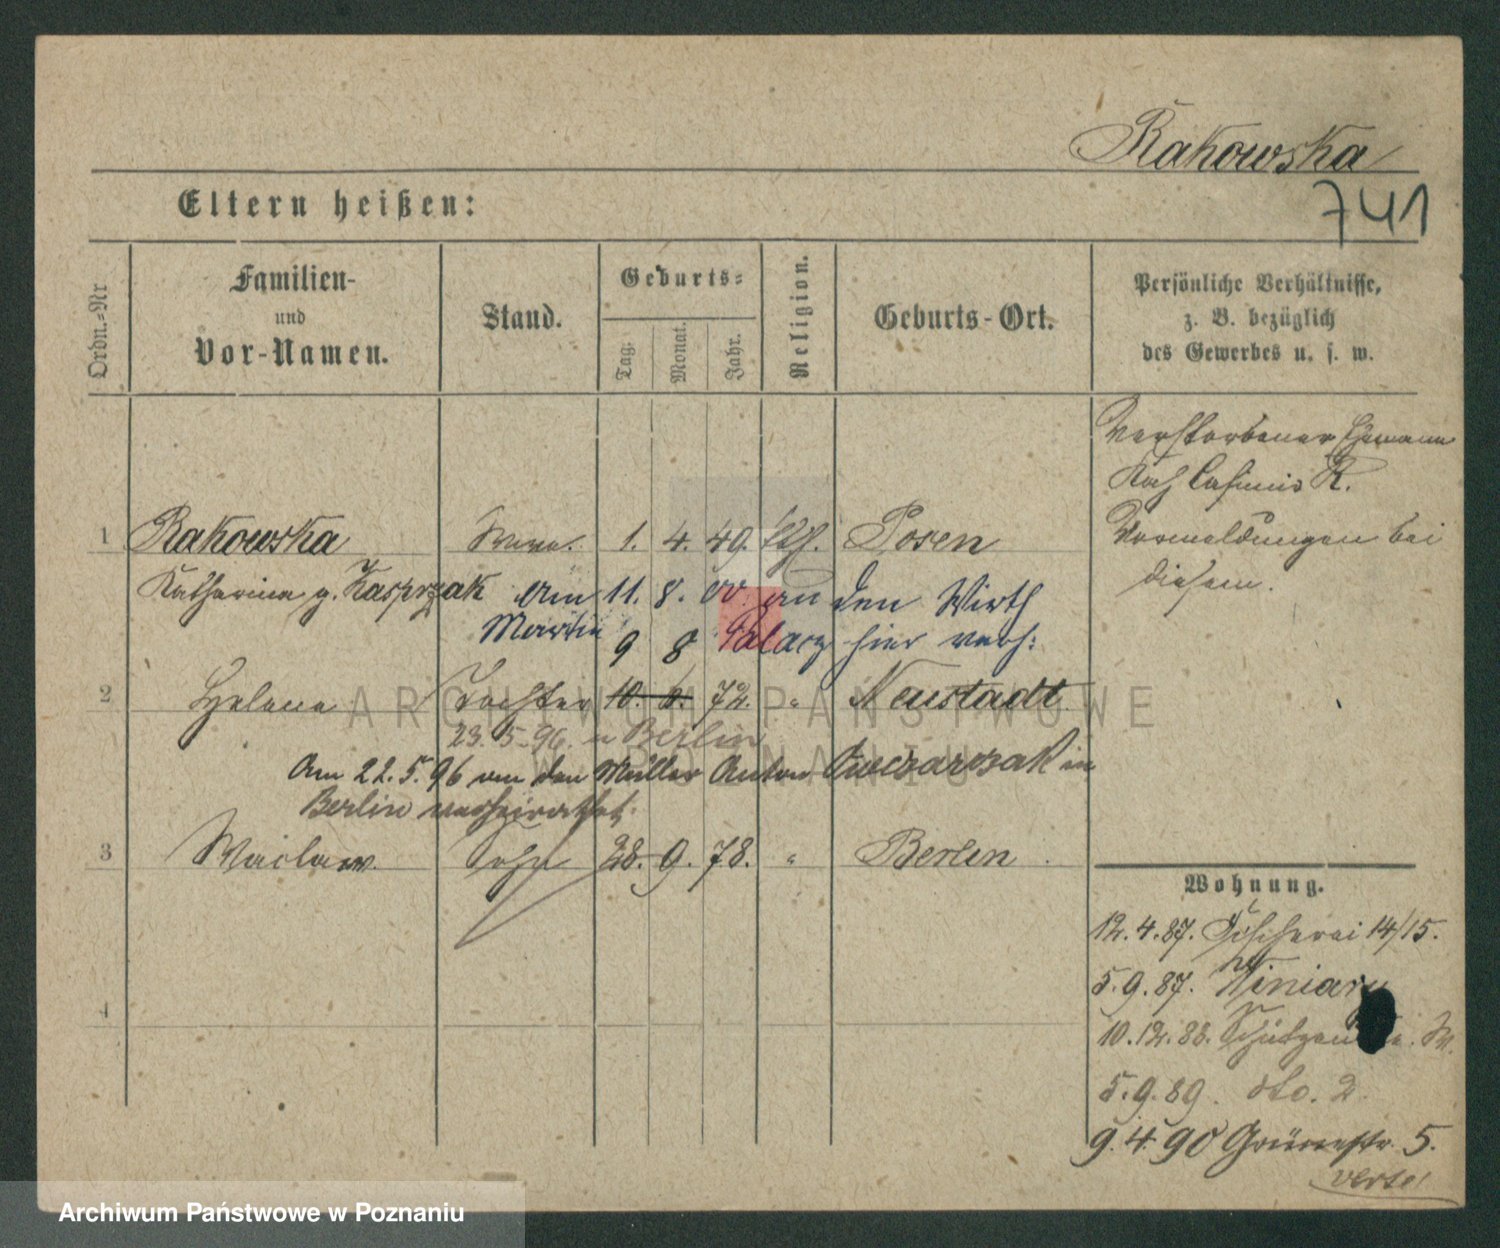 Rakowska
741
Eltern heißen:
Ordn.-Nr
Familien-
und
Vor-Namen.
Stand.
Geburts-
Tag.
Monat.
Jahr.
Religion.
Geburts-Ort.
Persönliche Verhältnisse,
z. B. bezüglich
des Gewerbes u. s. w.
Verstorbener Ehemann
Casimir R.
Vormeldungen bei
diesem.
1 Rakowska Wwe. 1. 4. 49. kth. Posen
Katharina g. Kasprzak am 11. 8. 00 an den Wirth
Martin 9 8 Palacz hier verh:
2 Helena Tochter 10. 6. 72. " Neustadt
23. 5. 96. n Berlin
Am 22. 5. 96 an den Müller Anton Owczarczak in
Berlin verheirathet.
3 Waclaw Sohn 28. 9. 78. " Berlin
4
Wohnung.
12. 4. 87. Fischerei 14/15.
5. 9. 87. Winiary
10. 12. 88. Schützen
5. 9. 89. dto. 2.
9. 4. 90 Grünestr. 5.
verte!
ARCHIWUM PAŃSTWOWE
W POZNANIU
Archiwum Państwowe w Poznaniu